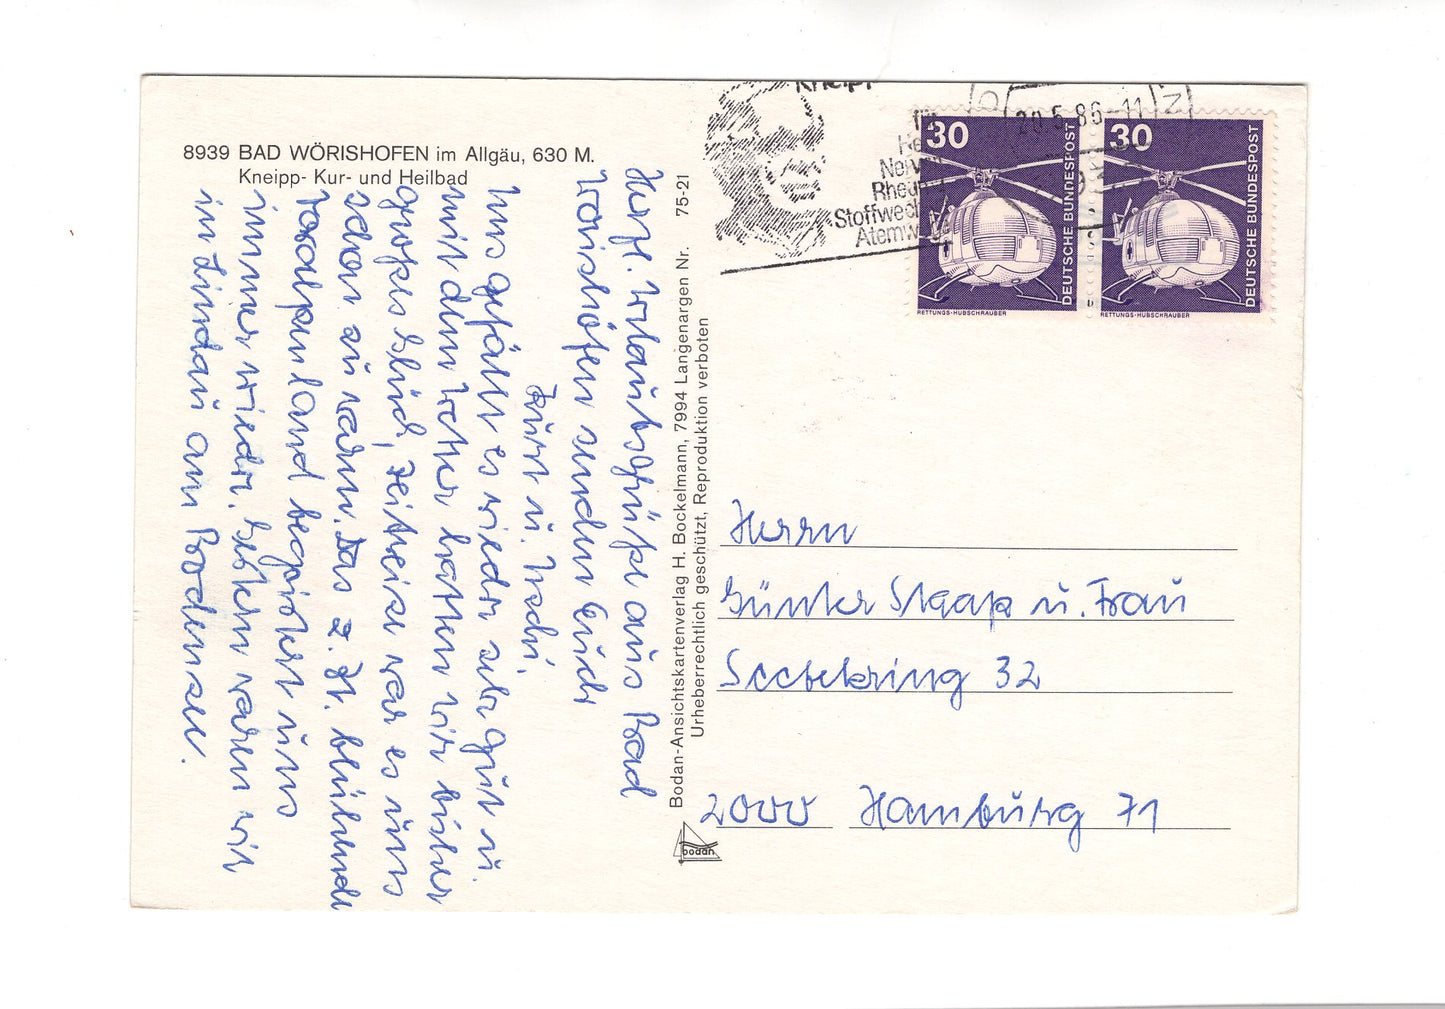 8939 BAD WÖRISHOFEN im Allgäu, 630 M.
Kneipp- Kur- und Heilbad
Herzl. Urlaubsgrüße aus Bad
Wörishofen senden Euch
Kurt u. Uschi.
Uns gefällt es wieder sehr gut u.
mit dem Wetter hatten wir bisher
großes Glück, zeitweise war es uns
schon zu warm. Das z. Zt. blühende
Voralpenland begeistert uns
immer wieder. Gestern waren wir
in Lindau am Bodensee.
Bodan-Ansichtskartenverlag H. Bockelmann, 7994 Langenargen Nr. 75-21
Urheberrechtlich geschützt, Reproduktion verboten
bodan
Kneipp
für
Nerven
Rheuma
Stoffwech
Atemweg
20.5.86-11
30
DEUTSCHE BUNDESPOST
RETTUNGS-HUBSCHRAUBER
30
DEUTSCHE BUNDESPOST
RETTUNGS-HUBSCHRAUBER
Herrn
Günter Staap u. Frau
Seebekring 32
2000 Hamburg 71